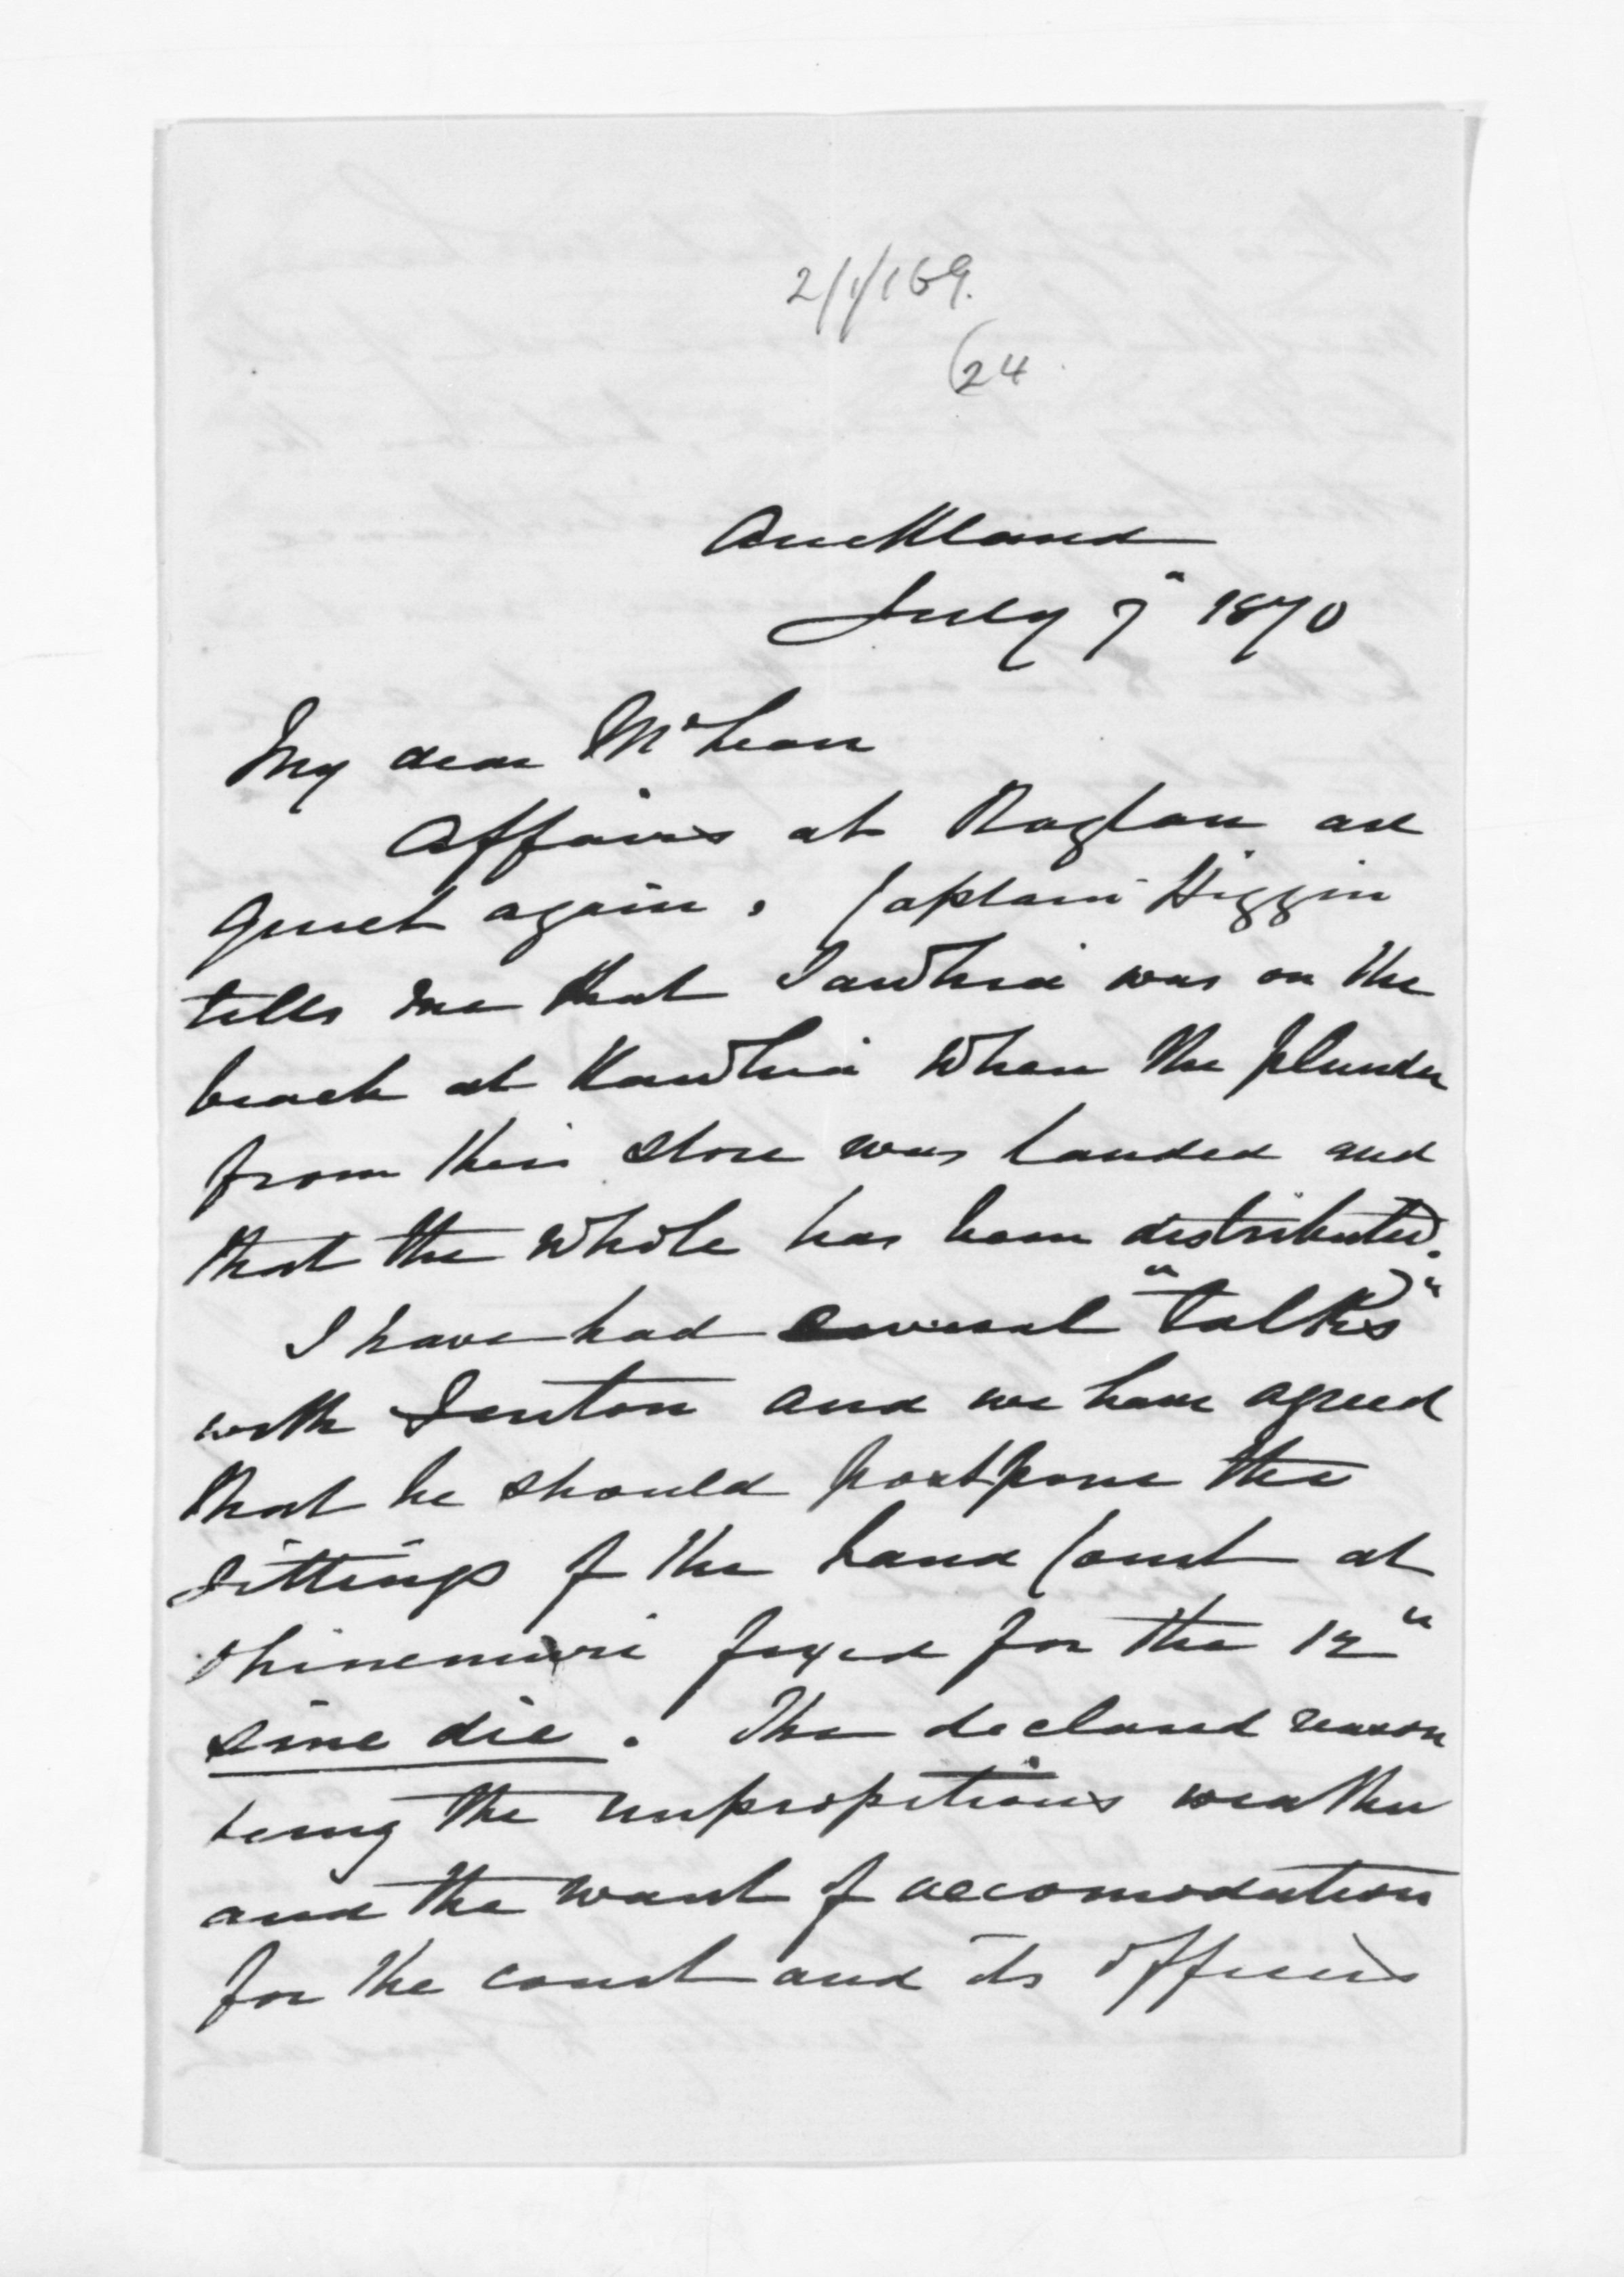 2/1/169.
(24
Auckland
July 7" 1870
My dear McLean
Affairs at Raglan are
quiet again. Captain Higgin
tells me that Tawhia was on the
beach at Kawhia when the plunder
from their store was landed and
that the whole has been distributed.
I have had several "talks"
with Fenton and we have agreed
that he should postpone the
sittings of the Land Court at
Ohinemuri fixed for the 12"
sine die. The declared reason
being the unpropitious weather
and the want of accomodation
for the court and its officers